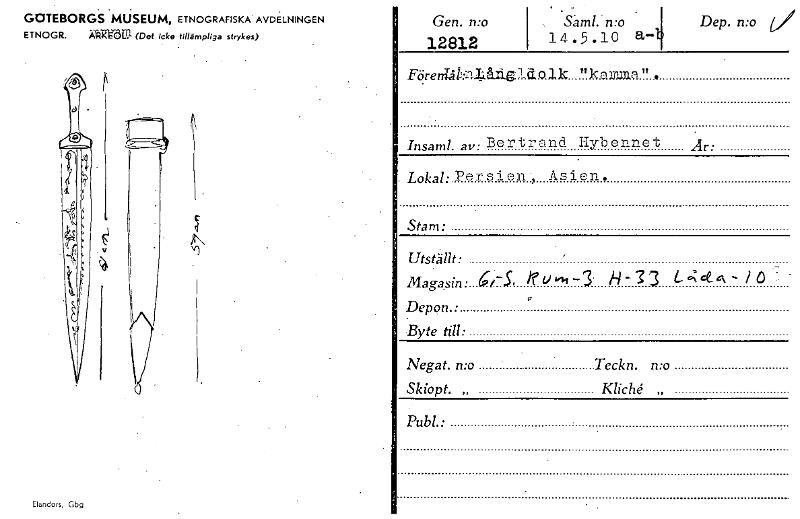 GÖTEBORGS MUSEUM, ETNOGRAFISKA AVDELNINGEN
ETNOGR. ARKEOL. (Det icke tillämpliga strykes)
57 cm
Elanders, Gbg
Gen. n:o Saml. n:o Dep. n:o
12812 14.5.10 a-b
Föremål: Långldolk "kamma".
Insaml. av: Bertrand Hybennet År:
Lokal: Persien, Asien.
Stam:
Utställt:
Magasin: G,-S. Rum-3 H-33 Låda-10
Depon.:
Byte till:
Negat. n:o Teckn. n:o
Skiopt. „ Kliché „
Publ.: